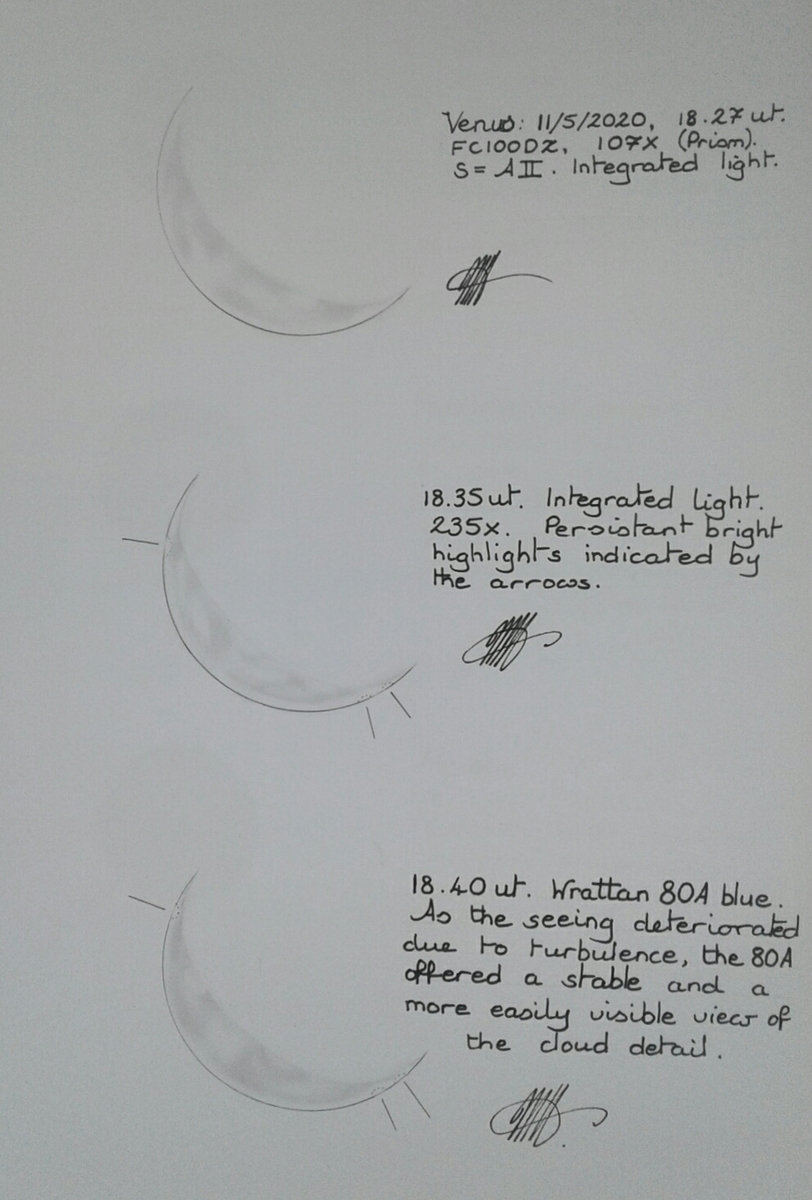 Venus: 11/5/2020, 18.27 ut.
FC100DZ, 107X (Prism).
S = AII. Integrated light.
18.35 ut. Integrated light.
235x. Persistant bright
highlights indicated by
the arrows.
18.40 ut. Wrattan 80A blue.
As the seeing deteriorated
due to turbulence, the 80A
offered a stable and a
more easily visible view of
the cloud detail.